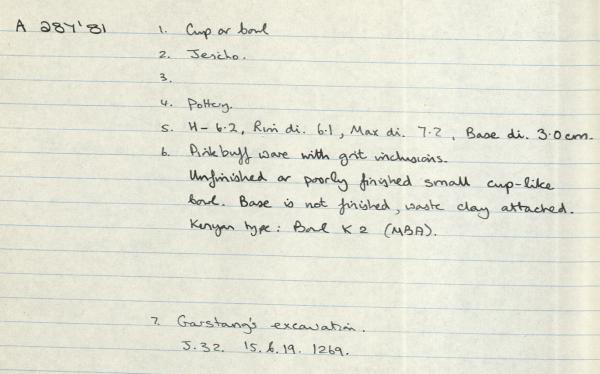 A 287'81
1. Cup or bowl
2. Jericho.
3.
4. Pottery.
5. H - 6.2, Rim di. 6.1, Max di. 7.2, Base di. 3.0 cm.
6. Pink buff ware with grit inclusions.
Unfinished or poorly finished small cup-like
bowl. Base is not finished, waste clay attached.
Kenyon type: Bowl K 2 (MBA).
7. Garstang's excavation.
J.32. 15.6.19. 1269.